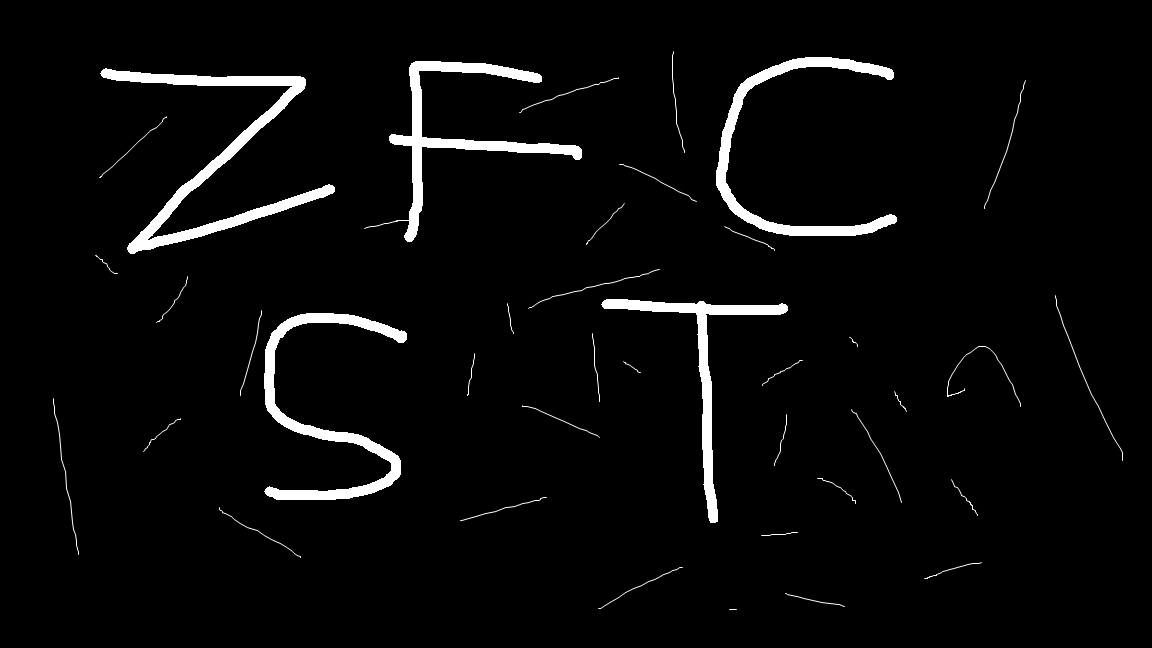 ZFC
ST